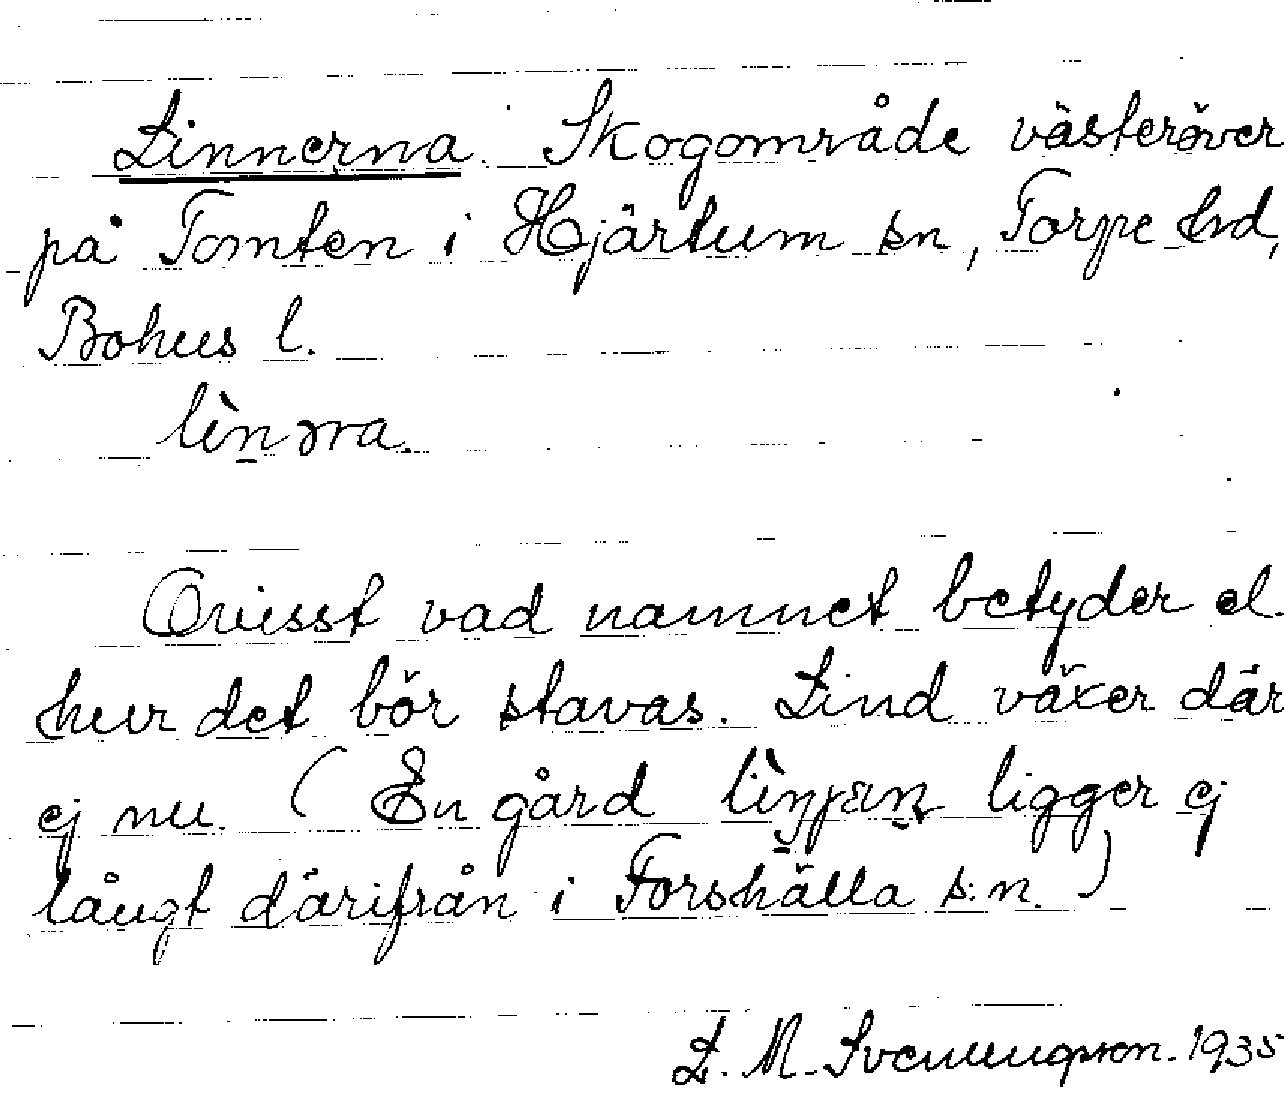 Linnerna. Skogområde västeröver
på Tomten i Hjärtum sn, Torpe hd,
Bohus l.
lìn̠ərа.
Ovisst vad namnet betyder el.
hur det bör stavas. Lind växer där
ej nu. (En gård ligger ej
långt därifrån i Forshälla s:n.)
L. M. Svenungsson. 1935